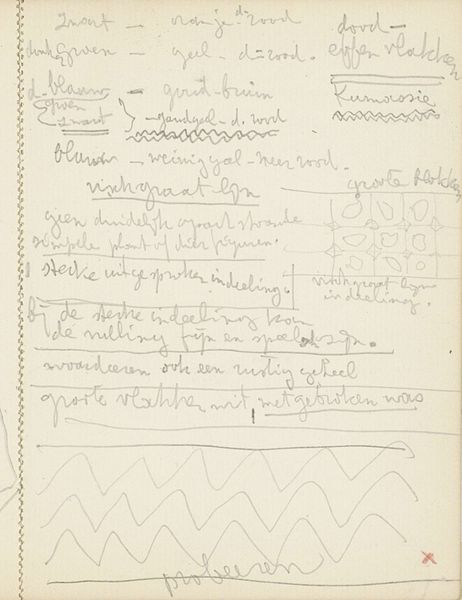 zwart — oranje d. rood
dood — effen vlakken
donk groen — geel - d = rood.
d- blauw — goud - bruin
Kumasie
groen
zwart
- goudgeel - d. rood
blauw — weinig geel - meer rood.
vischgraat lijn
groote blokken
geen duidelijk apart staande
simpele plant of dier figuren.
sterke uitgesproken indeeling.
vischgraat lijn
indeeling.
bij de sterke indeeling kan
de vulling fijn en speels zijn.
waardoor ook een rustig geheel
groote vlakken wit met gebroken was
probeeren